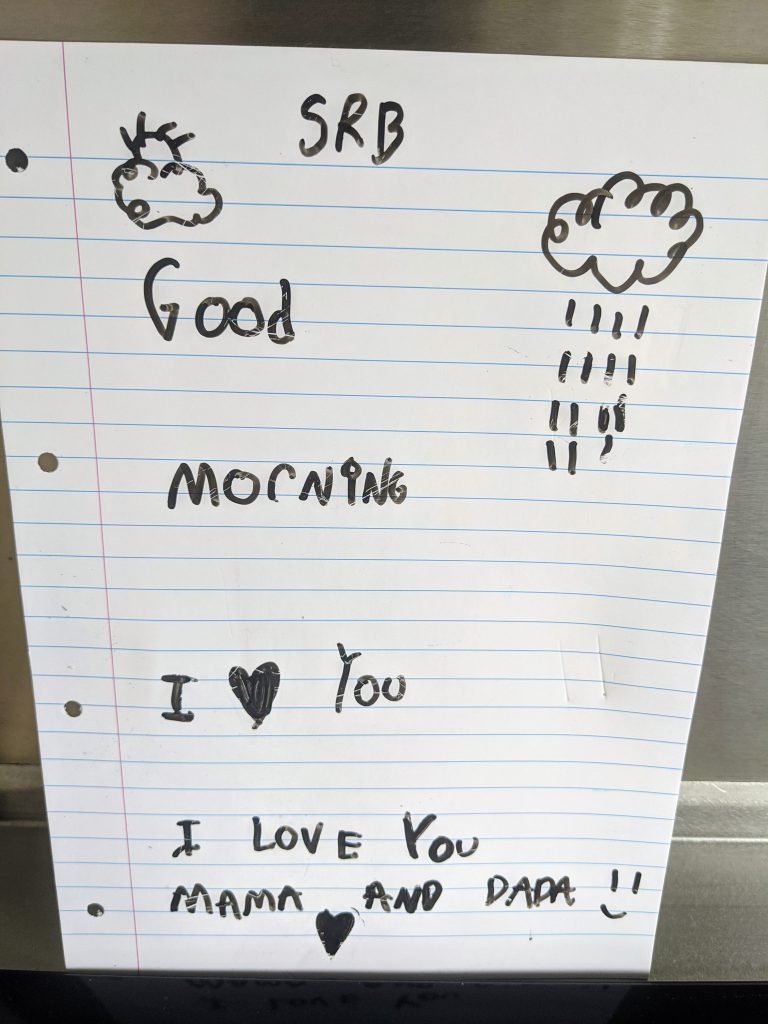 SRB
Good
MorNiNG
I ♥ You
I LOVE You
MAMA AND DADA !!